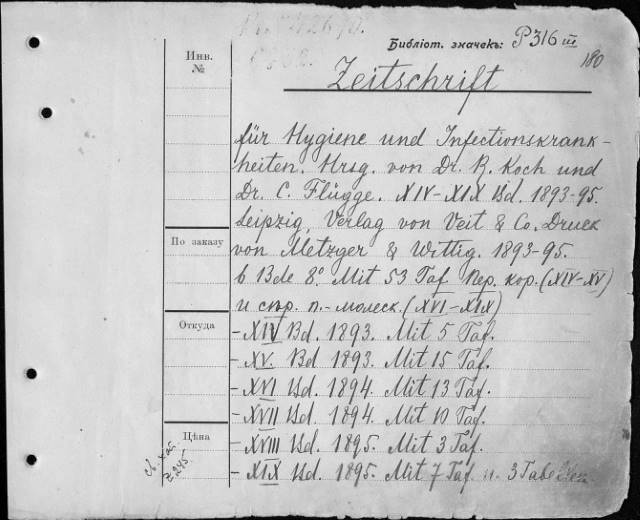 Библіот. значекъ: P316 III
180
Инв.
№
Zeitschrift
für Hygiene und Infectionskrank-
heiten. Hrsg. von Dr. R. Koch und
Dr. C. Flügge. XIV-XIX Bd. 1893-95.
Leipzig, Verlag von Veit & Co. Druck
von Metzger & Wittig. 1893-95.
По заказу
6 Bde 8°. Mit 53 Taf. пер. кор. (XIV-XV)
и сѣр. п.-молеск. (XVI-XIX)
Откуда
- XIV Bd. 1893. Mit 5 Taf.
- XV. Bd 1893. Mit 15 Taf.
- XVI Bd. 1894. Mit 13 Taf.
- XVII Bd. 1894. Mit 10 Taf.
Цѣна
- XVIII Bd. 1895. Mit 3 Taf.
- XIX Bd. 1895. Mit 7 Taf. u. 3 Tabellen